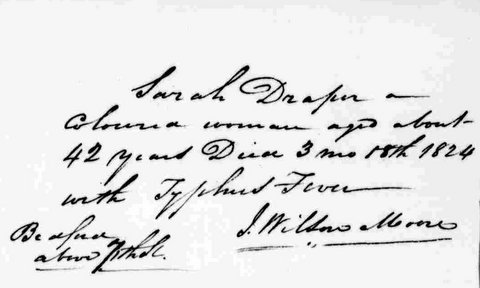 Sarah Draper a
Coloured woman aged about
42 years Died 3 mo 18th 1824
with Typhus Fever
J. Wilson Moore
Bedford
above 7th St.